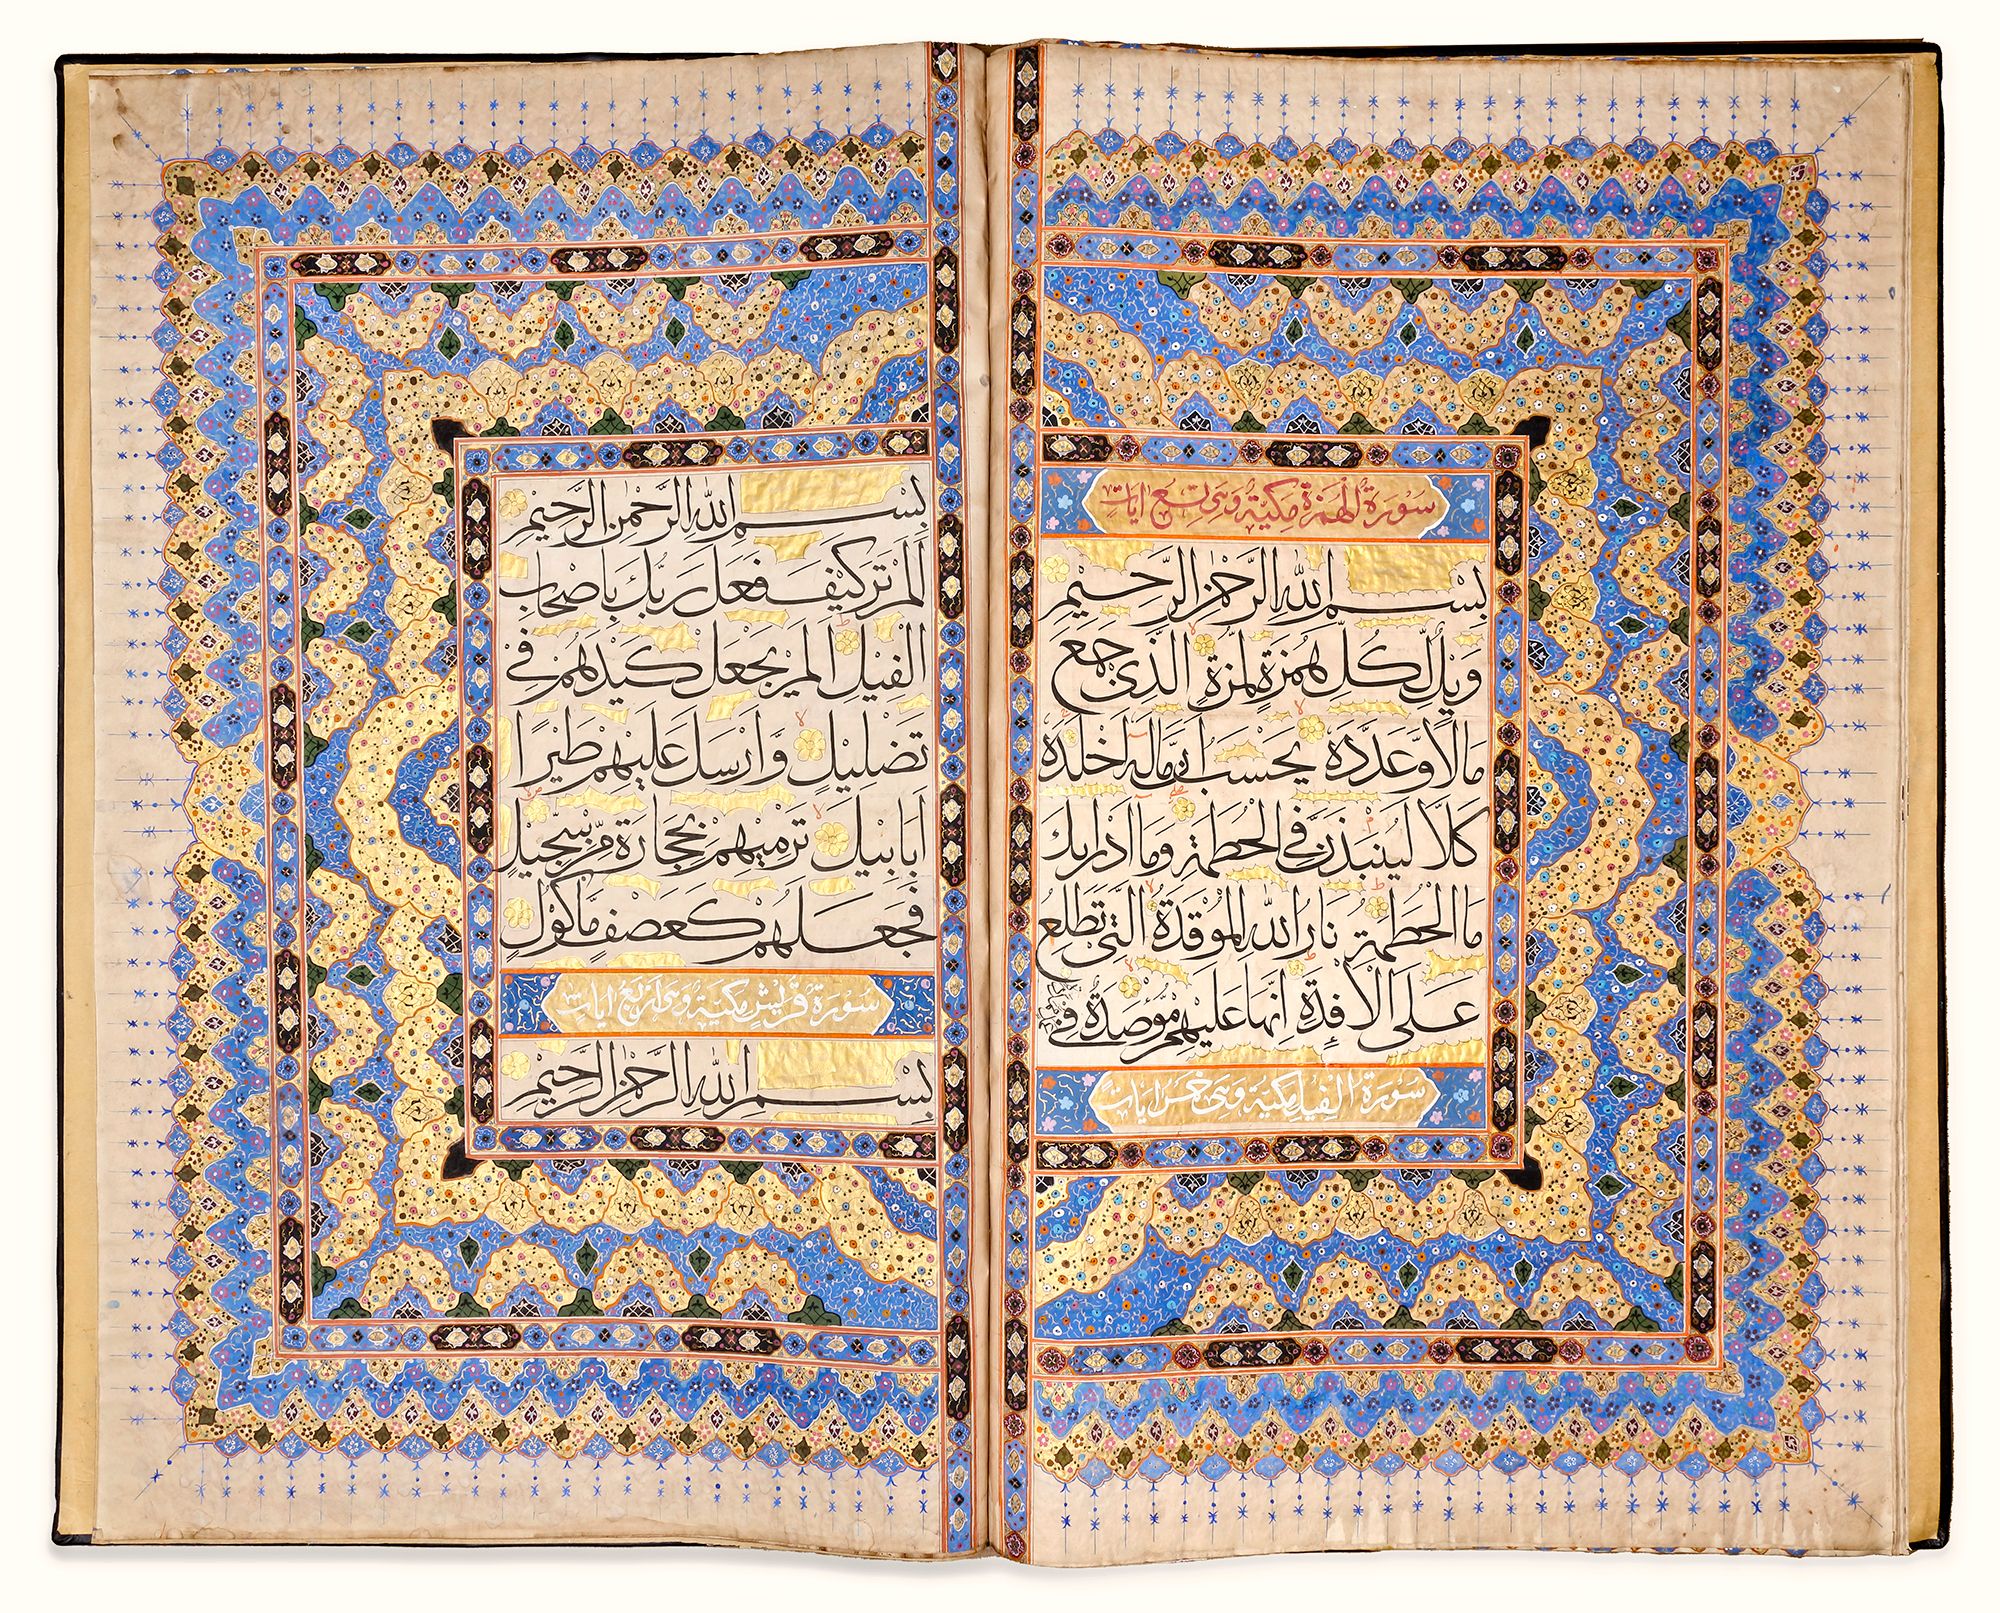 سورة الهمزة مكية وهى تسع ايات
بِسْمِ اللهِ الرَّحْمٰنِ الرَّحِيْمِ
وَيْلٌ لِّكُلِّ هُمَزَةٍ لُّمَزَةٍ الَّذِىْ جَمَعَ
مَالًا وَّعَدَّدَهٗ يَحْسَبُ اَنَّ مَالَهٗ اَخْلَدَهٗ
كَلَّا لَيُنْبَذَنَّ فِى الْحُطَمَةِ وَمَا اَدْرٰىكَ
مَا الْحُطَمَةُ نَارُ اللهِ الْمُوْقَدَةُ الَّتِىْ تَطَّلِعُ
عَلَى الْاَفْـِٕدَةِ اِنَّهَا عَلَيْهِمْ مُّؤْصَدَةٌ فِىْ
سورة الفيل مكية وهى خمس ايات
بِسْمِ اللهِ الرَّحْمٰنِ الرَّحِيْمِ
اَلَمْ تَرَ كَيْفَ فَعَلَ رَبُّكَ بِاَصْحَابِ
الْفِيْلِ اَلَمْ يَجْعَلْ كَيْدَهُمْ فِىْ
تَضْلِيْلٍ وَّاَرْسَلَ عَلَيْهِمْ طَيْرًا
اَبَابِيْلَ تَرْمِيْهِمْ بِحِجَارَةٍ مِّنْ سِجِّيْلٍ
فَجَعَلَهُمْ كَعَصْفٍ مَّاْكُوْلٍ
سورة قريش مكية وهى اربع ايات
بِسْمِ اللهِ الرَّحْمٰنِ الرَّحِيْمِ